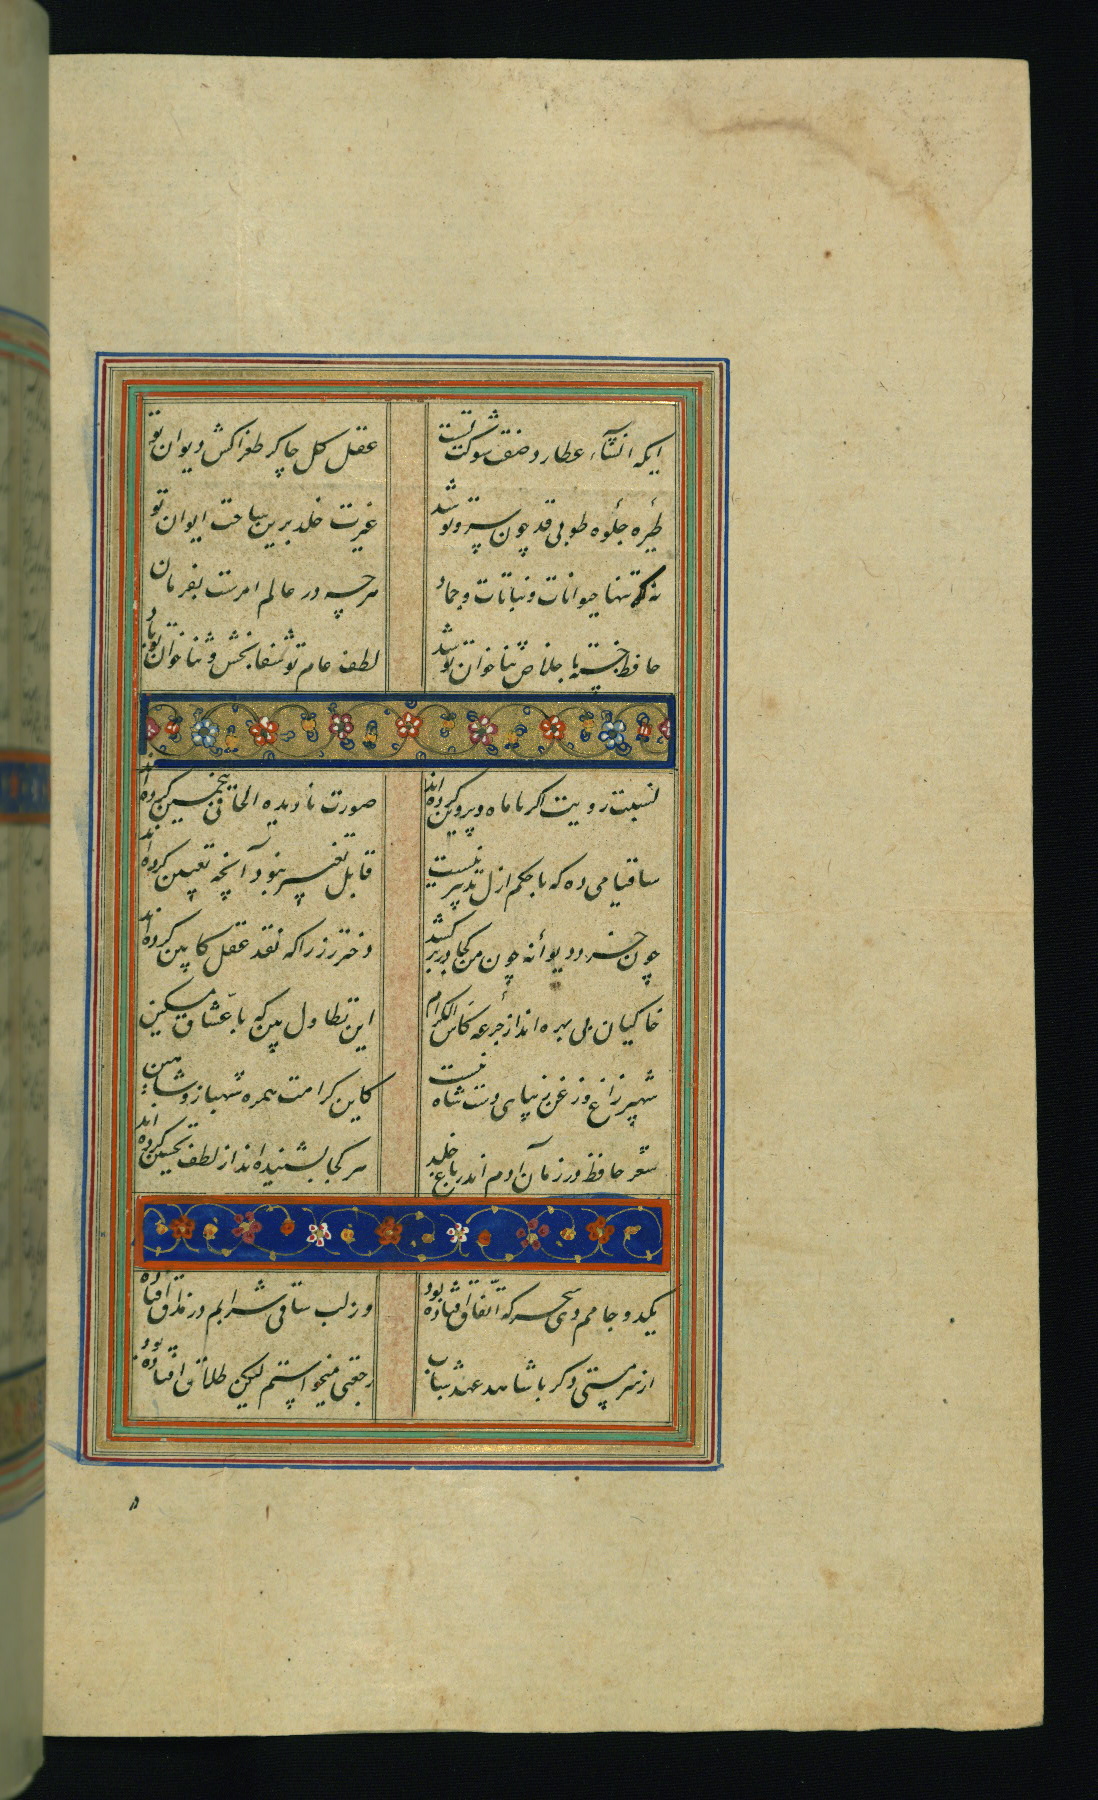 ایکه انشاء عطارد صفت شوکت تست
عقل کل چاکر طغراکش دیوان تو
طیره جلوه طوبی قد چون سرو تو شد
غیرت خلد برین ساحت ایوان تو
نه تنها حیوانات و نباتات و جماد
هرچه در عالم امرست بفرمان
حافظ خسته باخلاص ثناخوان تو شد
لطف عام تو شفابخش ثناخوان تو باد
نسبت رویت اکر با ماه و پروین کرده اند
صورت نادیده الحاقی بتخمین کرده اند
ساقیا می ده که با حکم ازل تدبیر نیست
قابل تغییر نبود آنچه تعیین کرده اند
چون خرد دیوانه چون من کجا در بر کشد
دختر رز را که نقد عقل کابین کرده اند
خاکیان بی بهره اند از جرعه کاس الکرام
این تطاول بین که با عشاق مسکین
شهپر زاغ و زغن زیبای دست شاه نیست
کاین کرامت همره شهباز و شاهین
شعر حافظ در زمان آدم اندر باغ خلد
هر کجا بشنیده اند از لطف تحسین کرده اند
یکدو جامم دی سحرکه اتفاق افتاده بود
وز لب ساقی شرابم در مذاق افتاده
از سر مستی دکر با شاهد عهد شباب
رجعتی میخواستم لیکن طلاق افتاده بود